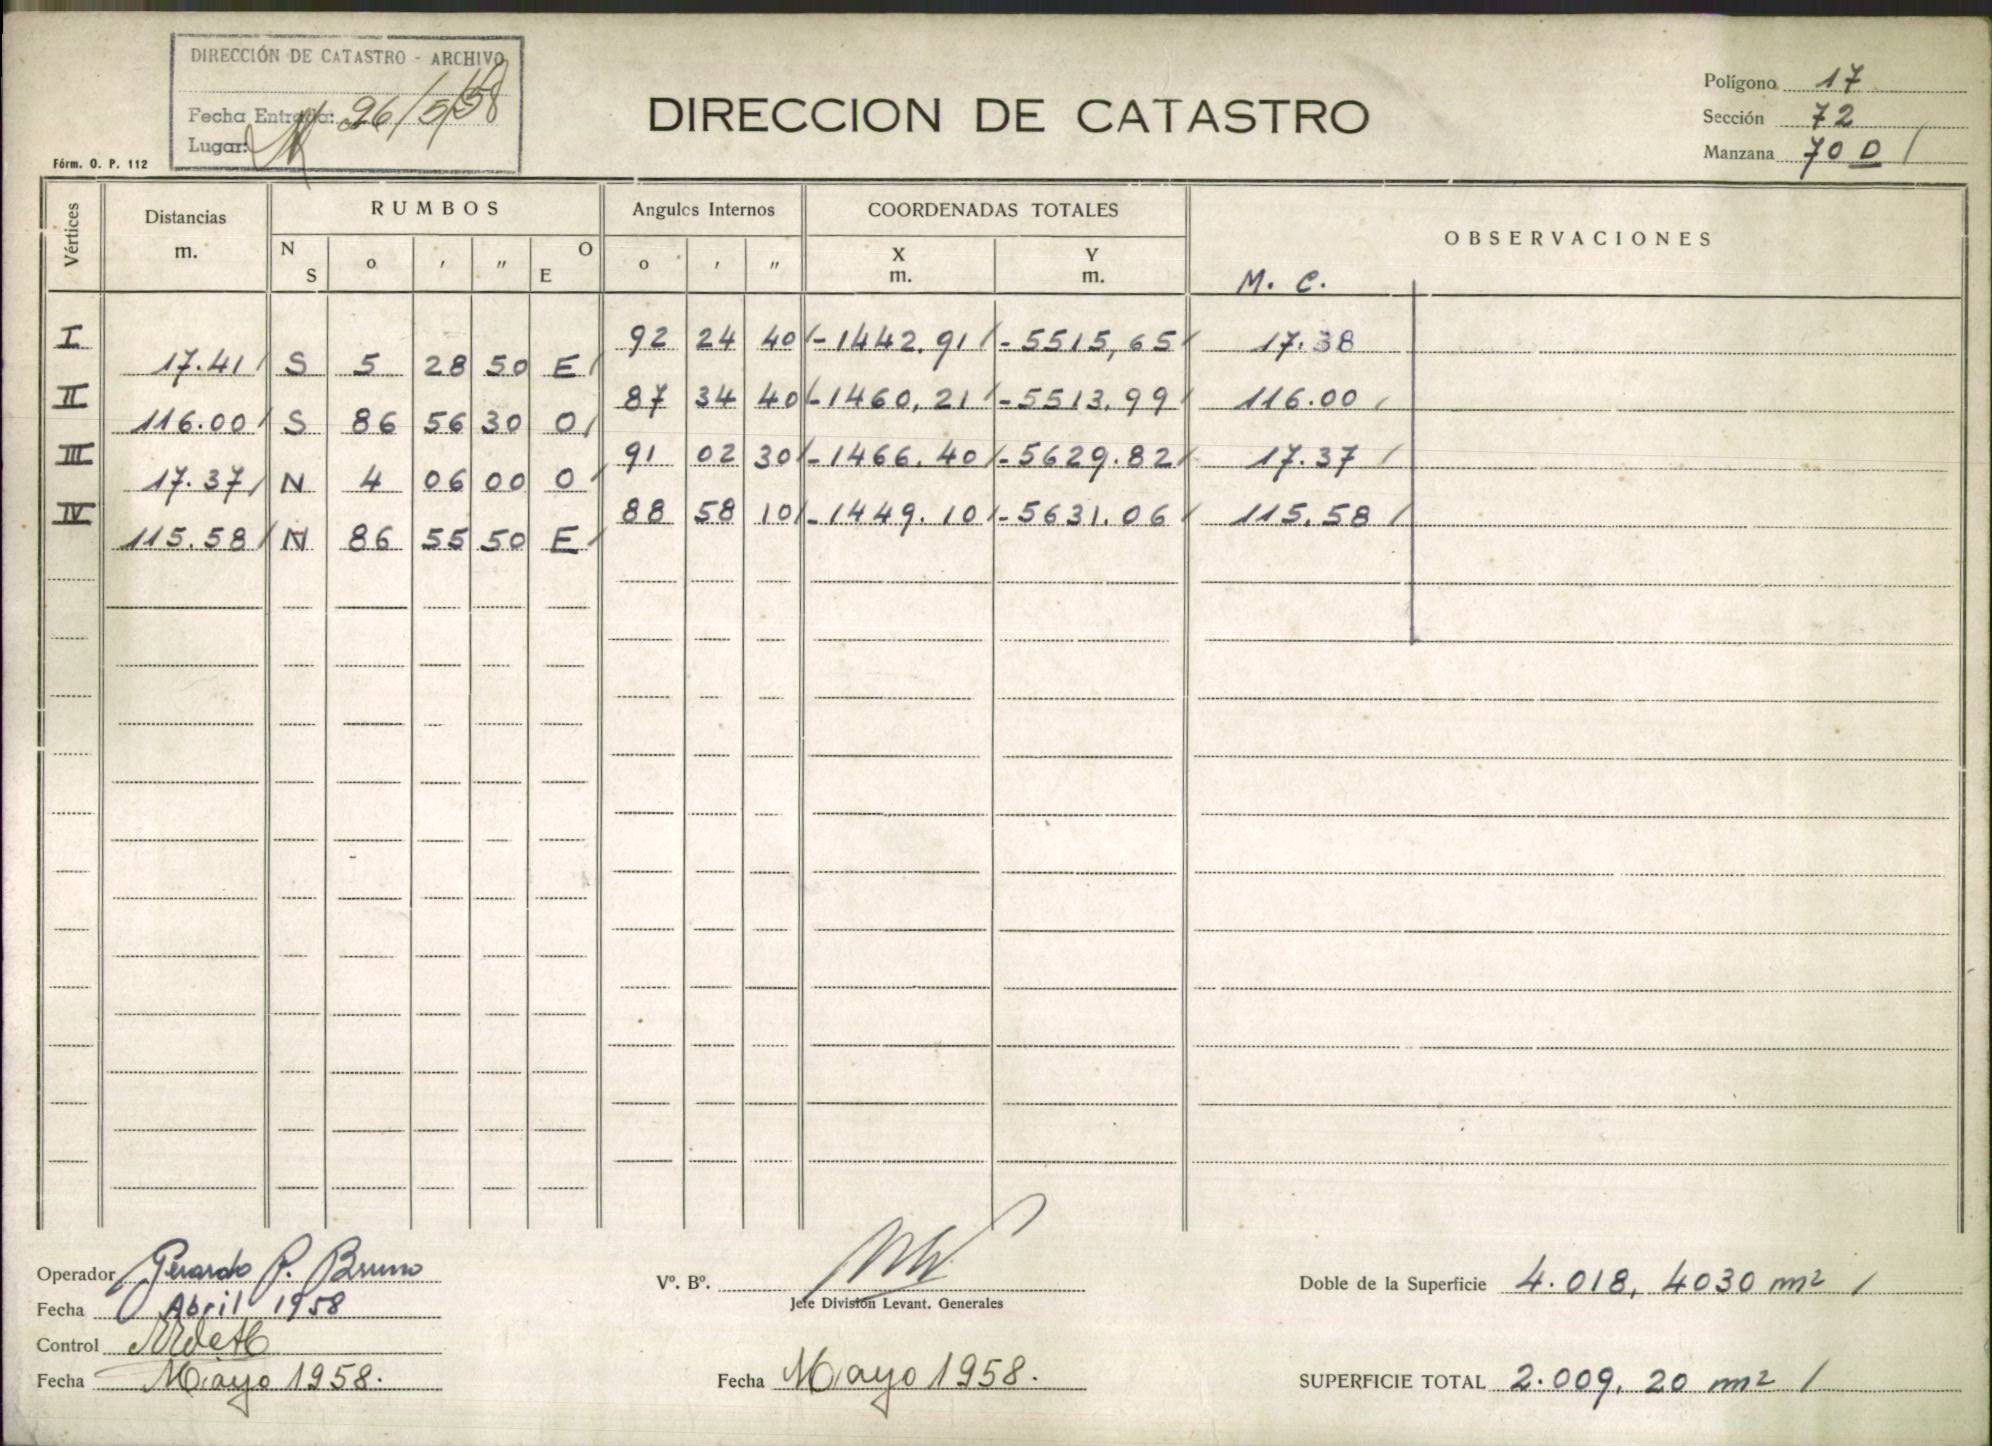 DIRECCIÓN DE CATASTRO - ARCHIVO
Fecha Entrada: 26/5/58
Lugar:
Fórm. O. P. 112
DIRECCION DE CATASTRO
Polígono 17
Sección 72
Manzana 70 D /
Vértices
Distancias m.
RUMBOS
N S o ′ ″ O E
Angulos Internos
o ′ ″
COORDENADAS TOTALES
X m. Y m.
OBSERVACIONES
M. C.
I 92 24 40 / -1442.91 / -5515,65 / 17.38
17.41 / S 5 28 50 E /
II 87 34 40 / -1460,21 / -5513.99 / 116.00 /
116.00 / S 86 56 30 O /
III 91 02 30 / -1466.40 / -5629.82 / 17.37 /
17.37 / N 4 06 00 O /
IV 88 58 10 / -1449.10 / -5631.06 / 115.58 /
115.58 / N 86 55 50 E /
Operador Gerardo P. Bruno
Fecha Abril 1958
Control
Fecha Mayo 1958.
Vº. Bº.
Jefe División Levant. Generales
Fecha Mayo 1958.
Doble de la Superficie 4.018, 4030 m2 /
SUPERFICIE TOTAL 2.009, 20 m2 /